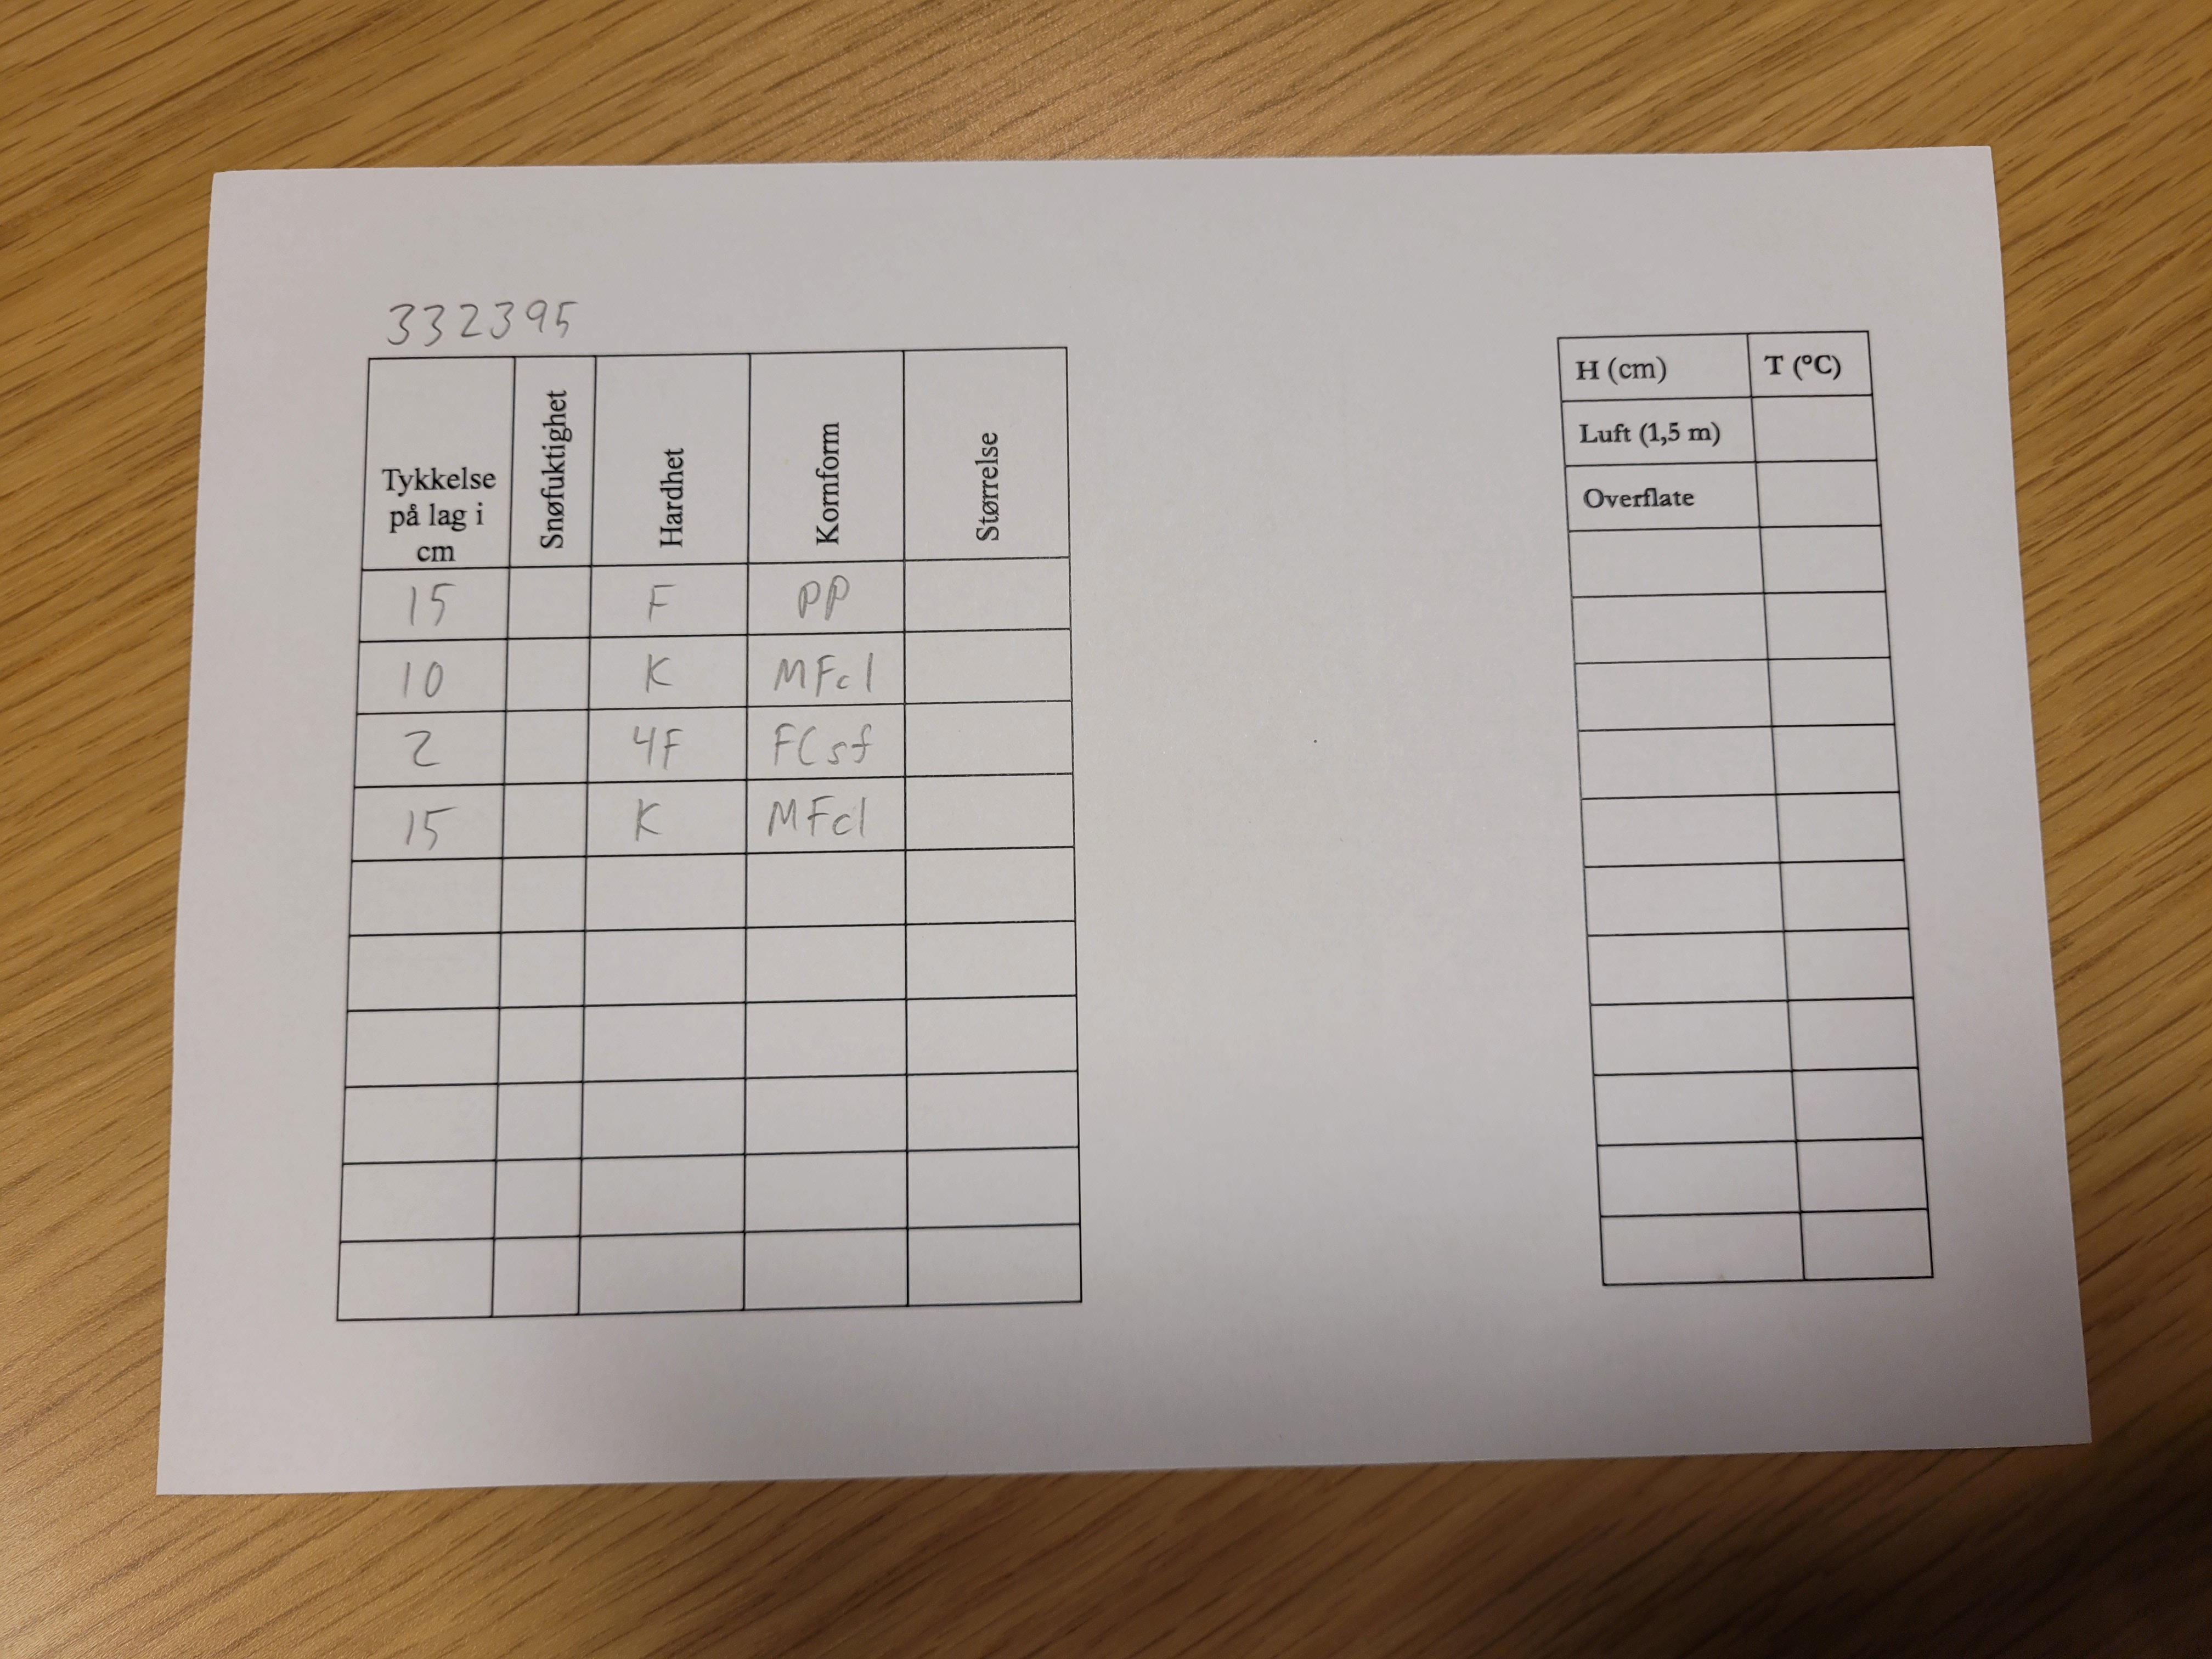 332395
Tykkelse på lag i cm Snøfuktighet Hardhet Kornform Størrelse
15 F PP
10 K MFcl
2 4F FCsf
15 K MFcl
H (cm) T (°C)
Luft (1,5 m)
Overflate